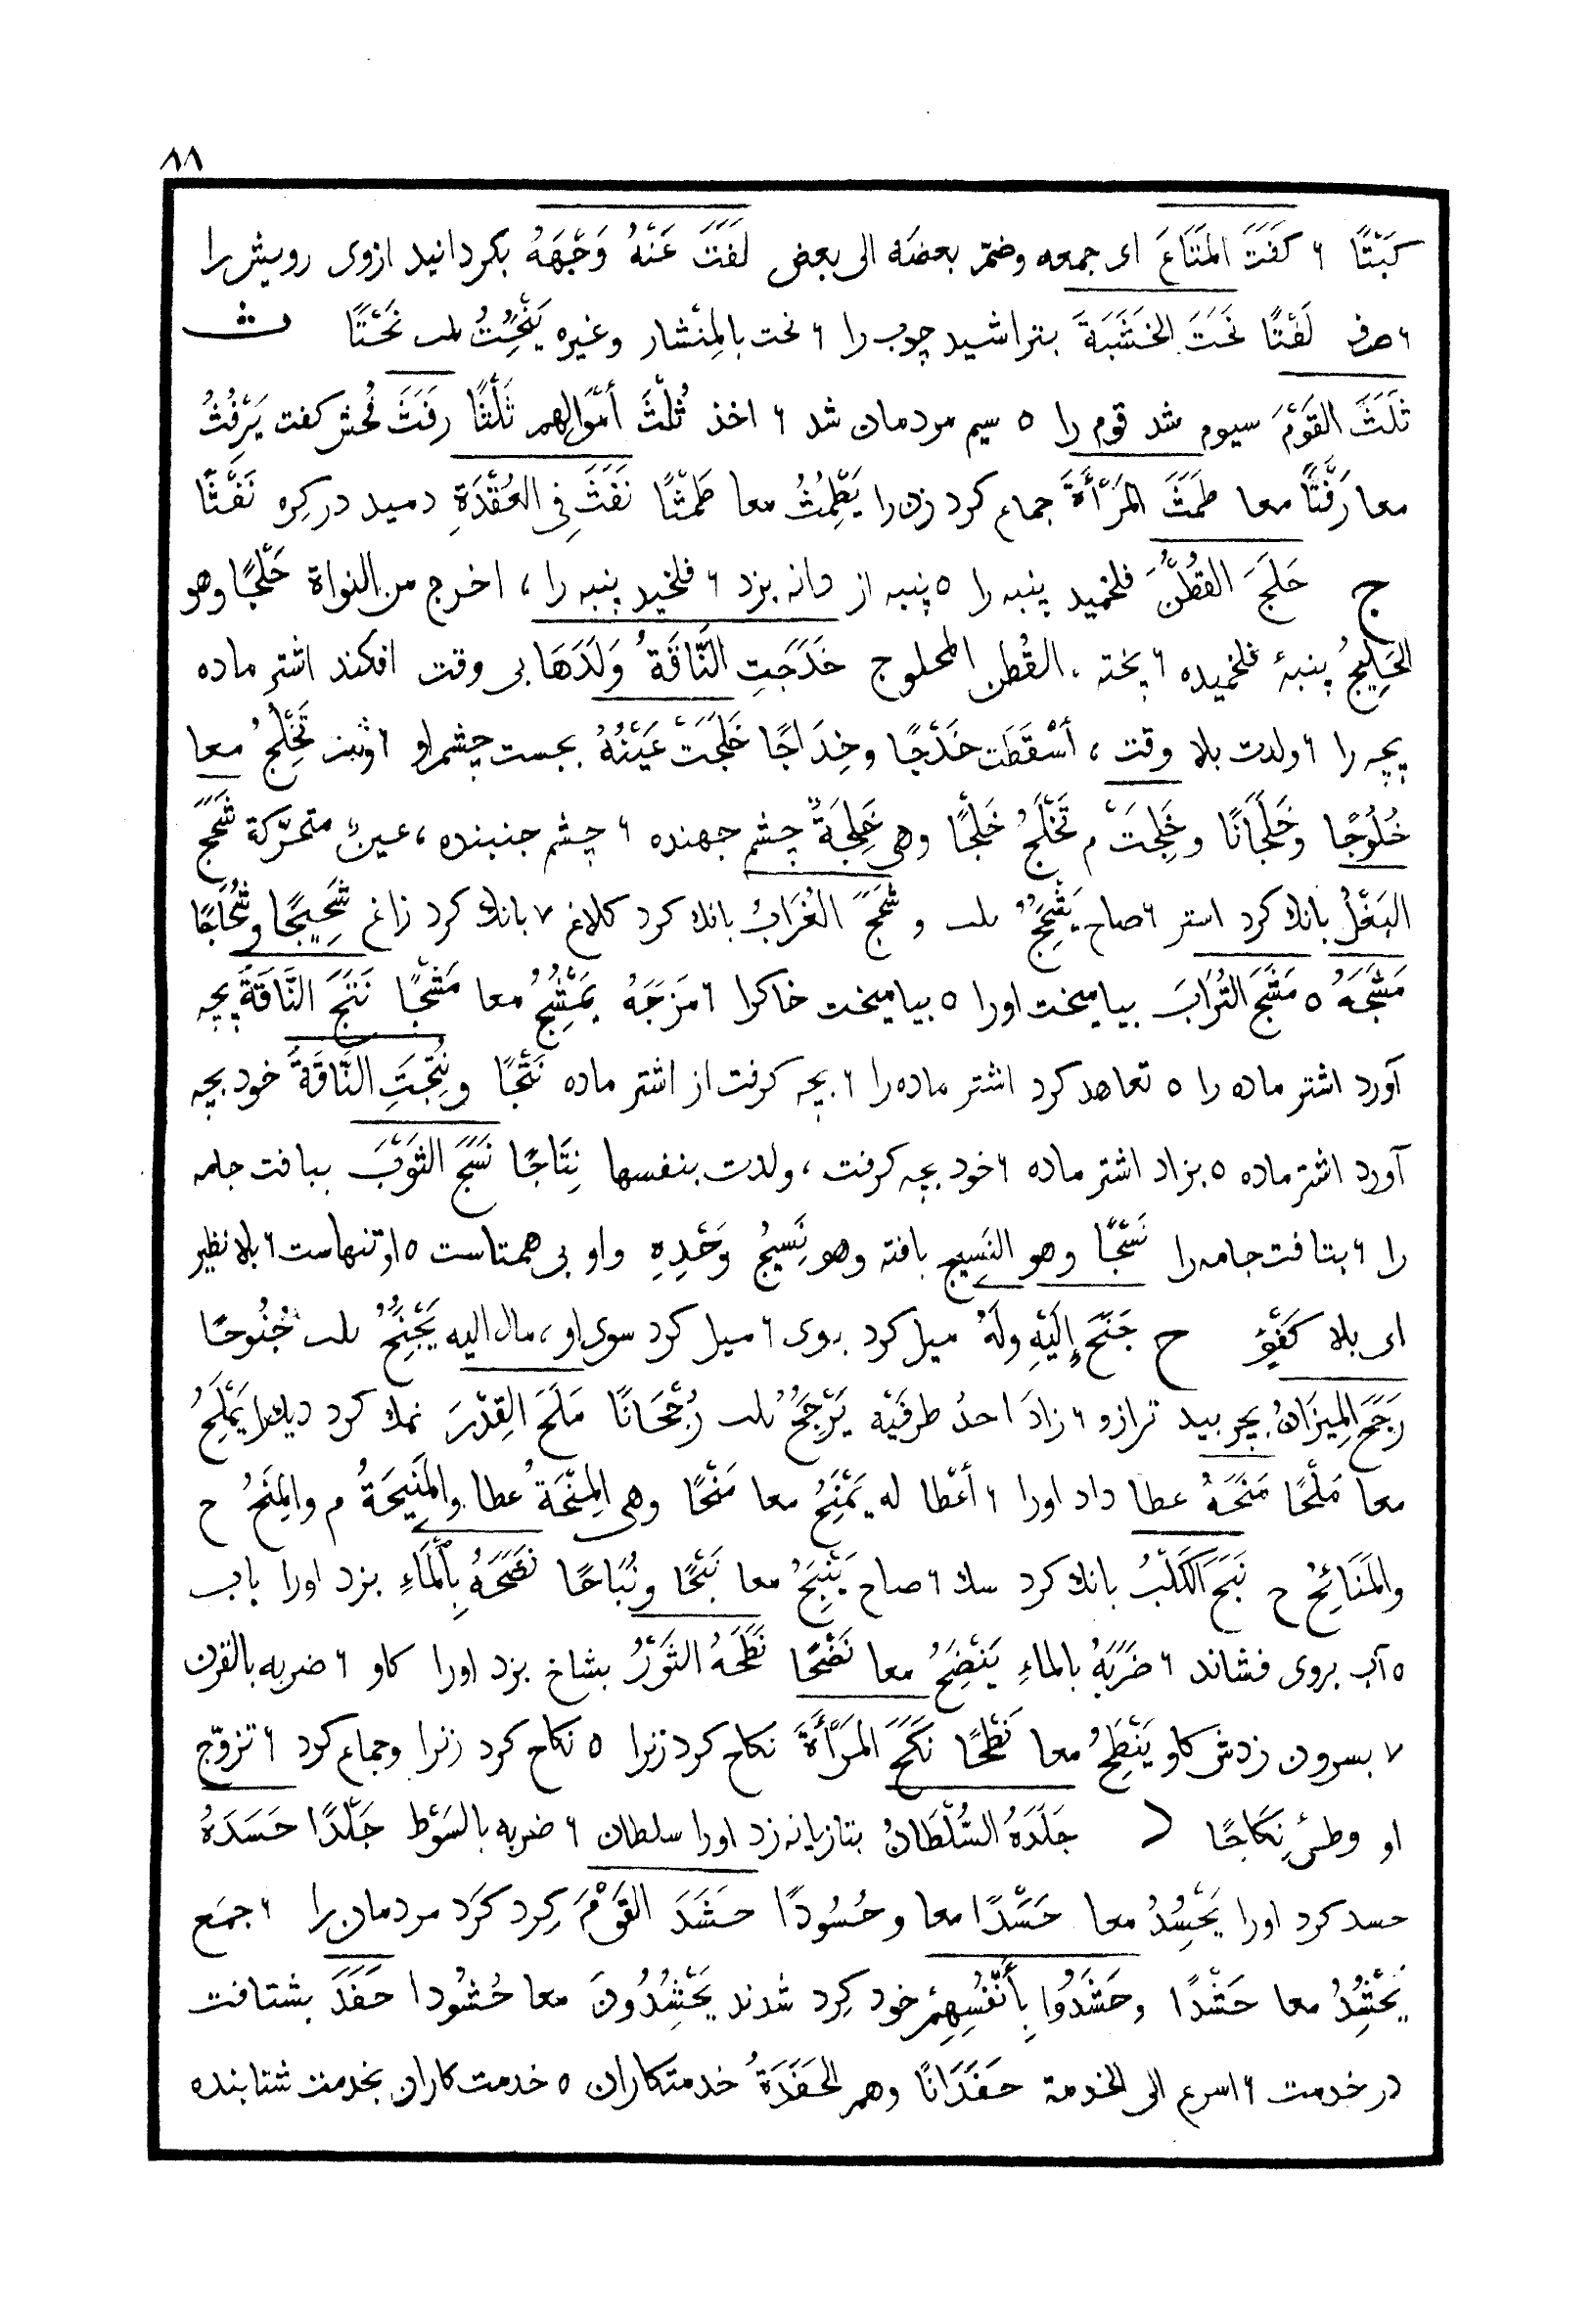 ٨٨
كَبْتًا ٦ كَفَتَ المَتَاعَ ای جمعه وضمّ بعضَه الی بعض لَفَتَ عَنْهُ وَجْهَهُ بکردانید ازوی رویش را
٦ صرف لَفْتًا نَحَتَ الخَشَبَةَ بتراشید چوب را ٦ نحت بالمِنْشار وغیره يَنْحِتُ لث نَحْتًا ث
ثَلَثَ القَوْمَ سیوم شد قوم را ٥ سیم مردمان شد ٦ اخذ ثُلْثَ أَمْوَالِهم ثَلْثًا رَفَثَ فُحش کفت يَرْفُثُ
معا رَفْثًا معا طَمَثَ المَرْأَةَ جماع کرد زن را يَطْمِثُ معا طَمْثًا نَفَثَ فِي العُقْدَةِ دمید در کِره نَفْثًا
ج حَلَجَ القُطُنَ فلخمید پنبه را ٥ پنبه از دانه بزد ٦ فلخید پنبه را ، اخرج من النواة حَلْجًا وهو
الحَلِيجُ پنبهٔ فلخمیده ٦ پخته ، القُطن المحلوج خَدَجَتِ النَّاقَةُ وَلَدَهَا بی وقت افکند اشتر ماده
بچه را ٦ ولدت بلا وقت ، أَسْقَطَت خَدْجًا وخِدَاجًا خَلَجَتْ عَيْنُهُ بجست چشم او تَخْلِجُ معا
خُلُوجًا وخَلَجَانًا وخَلِجَتْ م تَخْلَجُ خَلَجًا وهی خَلِجَةٌ چشم جهنده ٦ چشم جنبنده ، عینٌ متحرّکة شَحَجَ
البَغْلُ بانك کرد استر ٦ صاح يَشْحِجُ لث و شَحَجَ الغُرَابُ بانك کرد کلاغ ٧ بانك کرد زاغ شَحِيجًا وشُحَاجًا
مَشَجَهُ ٥ مَشَجَ التُرَابَ بیامیخت اورا ٥ بیامیخت خاکرا ٦ مَزَجَهُ يَمْشِجُ معا مَشْجًا نَتَجَ النَّاقَةَ بچه
آورد اشتر ماده را ٥ تعاهد کرد اشتر ماده را ٦ بچه کرفت از اشتر ماده نَتْجًا ونُتِجَتِ النَّاقَةُ خود بچه
آورد اشتر ماده ٥ بزاد اشتر ماده ٦ خود بچه کرفت ، ولدت بنفسها نِتَاجًا نَسَجَ الثَوْبَ ببافت جامه
را ٦ بتافت جامه را نَسْجًا وهو النَسِيج بافته وهو نَسِيجُ وَحْدِهِ واو بی همتاست ٥ او تنهاست ٦ بلا نظیر
ای بلا كَفْوٍ ح جَنَحَ إِلَيْهِ ولَهُ میل کرد بوی ٦ میل کرد سوی او ، مال الیه يَجْنِحُ لث جُنُوحًا
رَجَحَ المِيزَانُ بچربید ترازو ٦ زادَ احدُ طرفَیْه يَرْجِحُ لث رُجْحَانًا مَلَحَ القِدْرَ نمك کرد دیك را يَمْلِحُ
معا مَلْحًا مَنَحَهُ عطا داد اورا ٦ أَعْطا له يَمْنِحُ معا مَنْحًا وهی المِنْحَةُ عطا والمَنِيحَةُ م والمِنَحُ ح
والمَنَائِحُ ح نَبَحَ الكَلْبُ بانك کرد سك ٦ صاح يَنْبِحُ معا نَبْحًا ونُبَاحًا نَضَحَهُ بِالْمَاءِ بزد اورا بآب
٥ آب بروی فشاند ٦ ضَرَبَهُ بالماءِ يَنْضِحُ معا نَضْحًا نَطَحَهُ الثَوْرُ بشاخ بزد اورا کاو ٦ ضربه بالقرن
٧ بسرون زدش کاو يَنْطِحُ معا نَطْحًا نَكَحَ المَرْأَةَ نکاح کرد زنرا ٥ نکاح کرد زنرا وجماع کرد ٦ تزوّج
او وطئ نِكَاحًا د جَلَدَهُ السُّلْطَانُ بتازیانه زد اورا سلطان ٦ ضربه بالسَوْط جَلْدًا حَسَدَهُ
حسد کرد اورا يَحْسِدُ معا حَسَدًا معا وحُسُودًا حَشَدَ القَوْمَ کِرد کَرد مردمان را ٦ جمَع
يَحْشِدُ معا حَشْدًا وحَشَدُوا بِأَنْفُسِهِمْ خود کِرد شدند يَحْشِدُونَ معا حُشُودا حَفَدَ بشتافت
در خدمت ٦ اسرع الی الخدمة حَفَدَانًا وهم الحَفَدَةُ خدمتکاران ٥ خدمت کاران بخدمت شتابنده